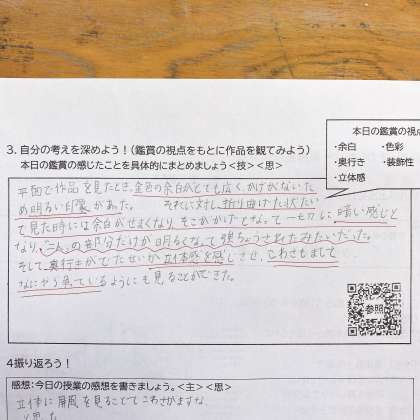 3. 自分の考えを深めよう！（鑑賞の視点をもとに作品を観てみよう）
本日の鑑賞の感じたことを具体的にまとめましょう<技><思>
本日の鑑賞の視点
・余白 ・色彩
・奥行き ・装飾性
・立体感
平面で作品を見たとき、金色の余白がとても広く、かげがないた
め明るい印象があった。それに対し、折り曲げた状たい
で見た時には余白がせまくなり、そこがかげとなって一気に暗い感じと
なり、一人の部分だけが明るくなって強ちょうされたみたいだった。
そして奥行きがでたせいか立体感を感じさせ、こわさもまして
なにやら
ているようにも見ることができた。
参照
4振り返ろう！
感想：今日の授業の感想を書きましょう。<主><思>
立体に屏風を見ることでこわさがまずな